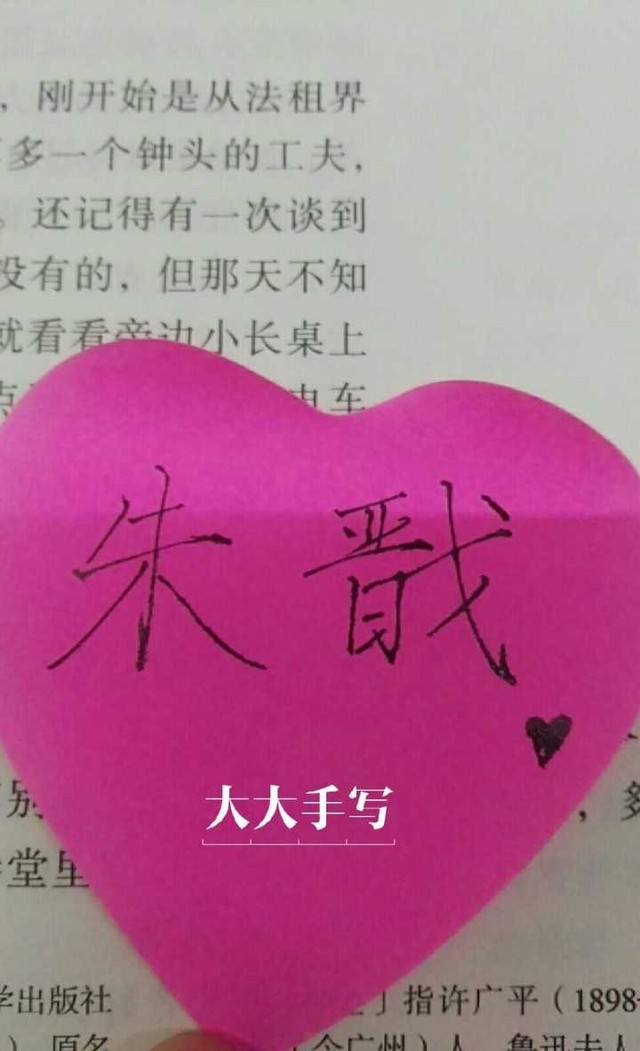 ，刚开始是从法租界
多一个钟头的工夫，
。还记得有一次谈到
没有的，但那天不知
就看看旁边小长桌上
电车
朱戬
大大手写
别 ，多
堂里
学出版社 」指许广平（1898-
），原名 （今广州）人，鲁迅夫人